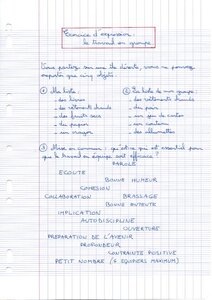 Exercice d'expression :
le travail en groupe
Vous partez sur une île déserte, vous ne pouvez
emporter que cinq objets.
① Ma liste
- des livres
- des vêtements chauds
- des fruits secs
- du papier
- un crayon
② La liste de mon groupe :
- des vêtements chauds
- du pain
- un jeu de cartes
- un couteau
- des allumettes
③ Mise en commun : qu'est-ce qui est essentiel pour
que le travail en équipe soit efficace ?
PAROLE
ECOUTE
BONNE HUMEUR
COHESION
COLLABORATION BRASSAGE
BONNE ENTENTE
IMPLICATION
AUTODISCIPLINE
OUVERTURE
PREPARATION DE L'AVENIR
PROFONDEUR
CONTRAINTE POSITIVE
PETIT NOMBRE (5 EQUIPIERS MAXIMUM)